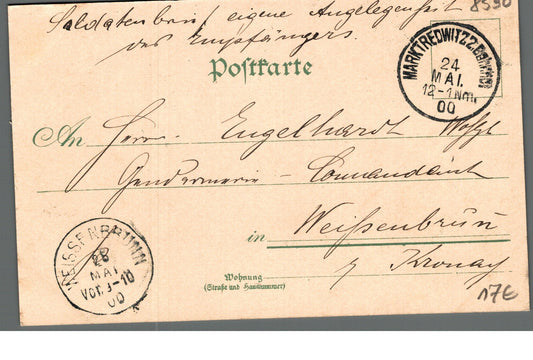 8590
Soldatenbrief, eigene Angelegenheit
des Empfängers.
Postkarte
MARKTREDWITZ 2. Bahnhof
24
MAI.
12-1 Nm
00
An Herrn Engelhardt Wohlgb
Gendarmerie-Commandant
in Weißenbrun
b/ Kronach
WEISSENBRUNN
25
MAI
Vor. 9-10
00
Wohnung
(Straße und Hausnummer)
17€